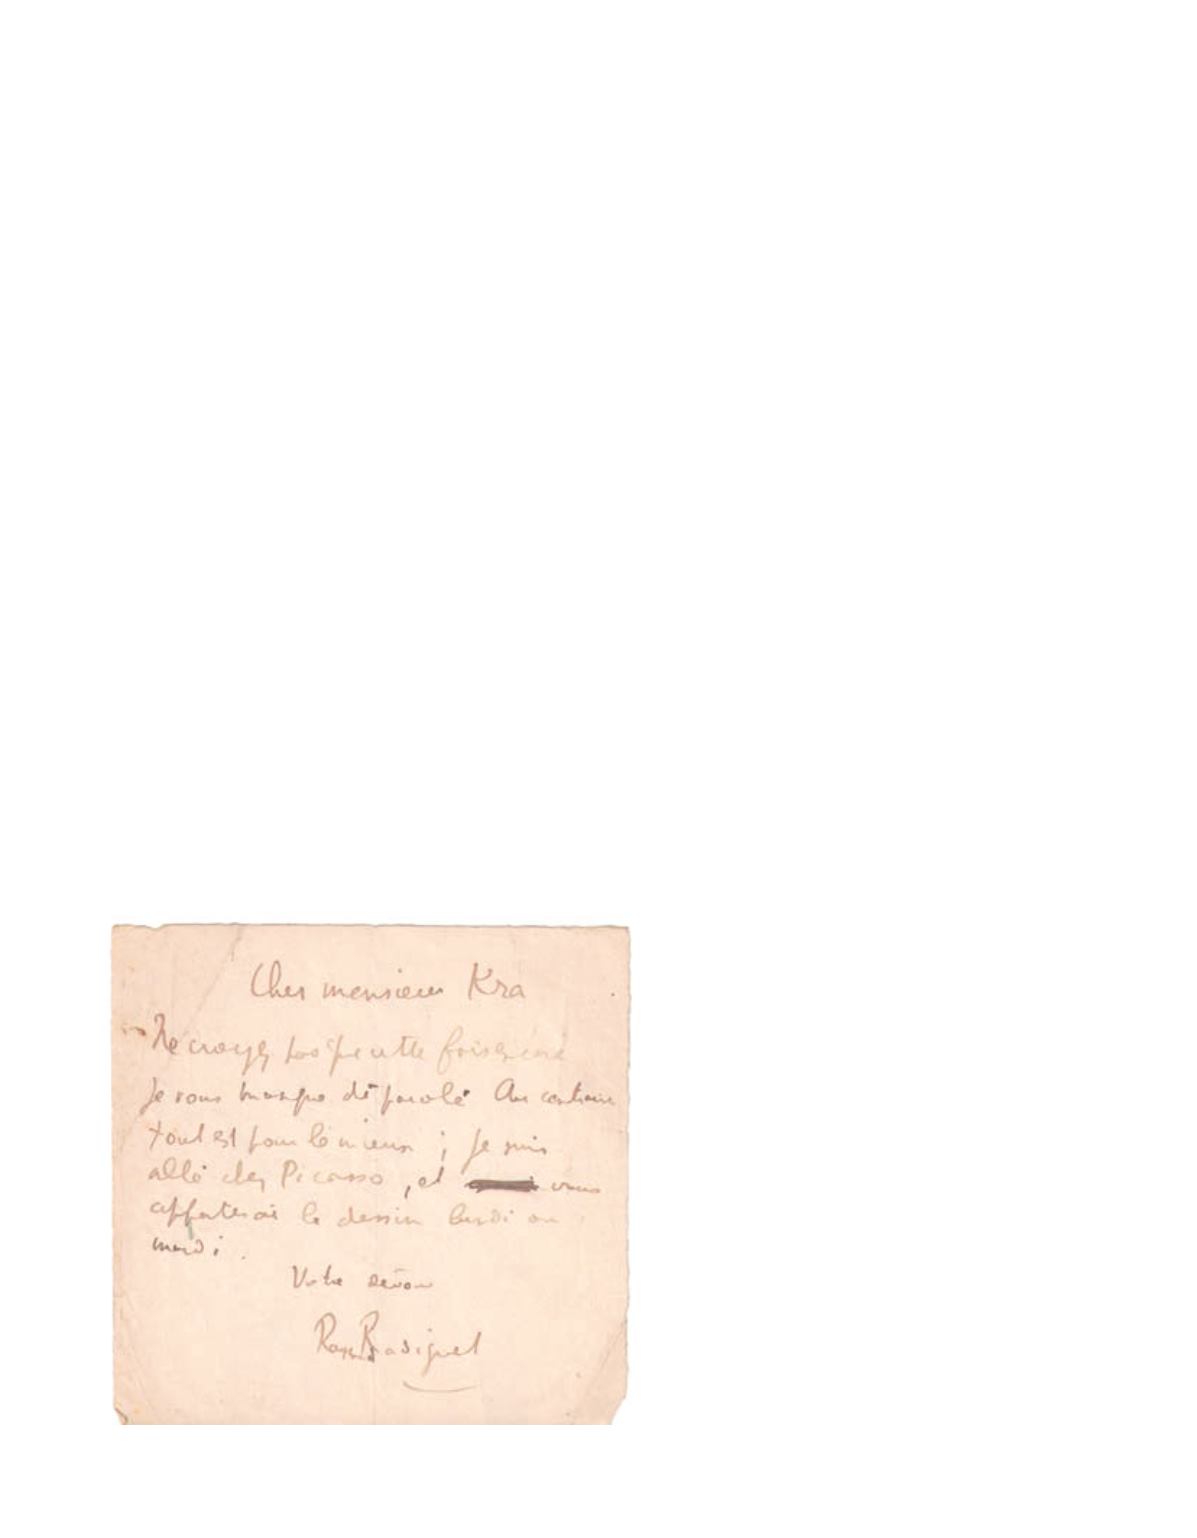 Cher monsieur Kra
Ne croyez pas que cette fois encore
je vous manque de parole Au contraire
tout est pour le mieux ; je suis
allé chez Picasso, et vous
apporterai le dessin lundi ou
mardi.
Votre dévoué
Radiguet